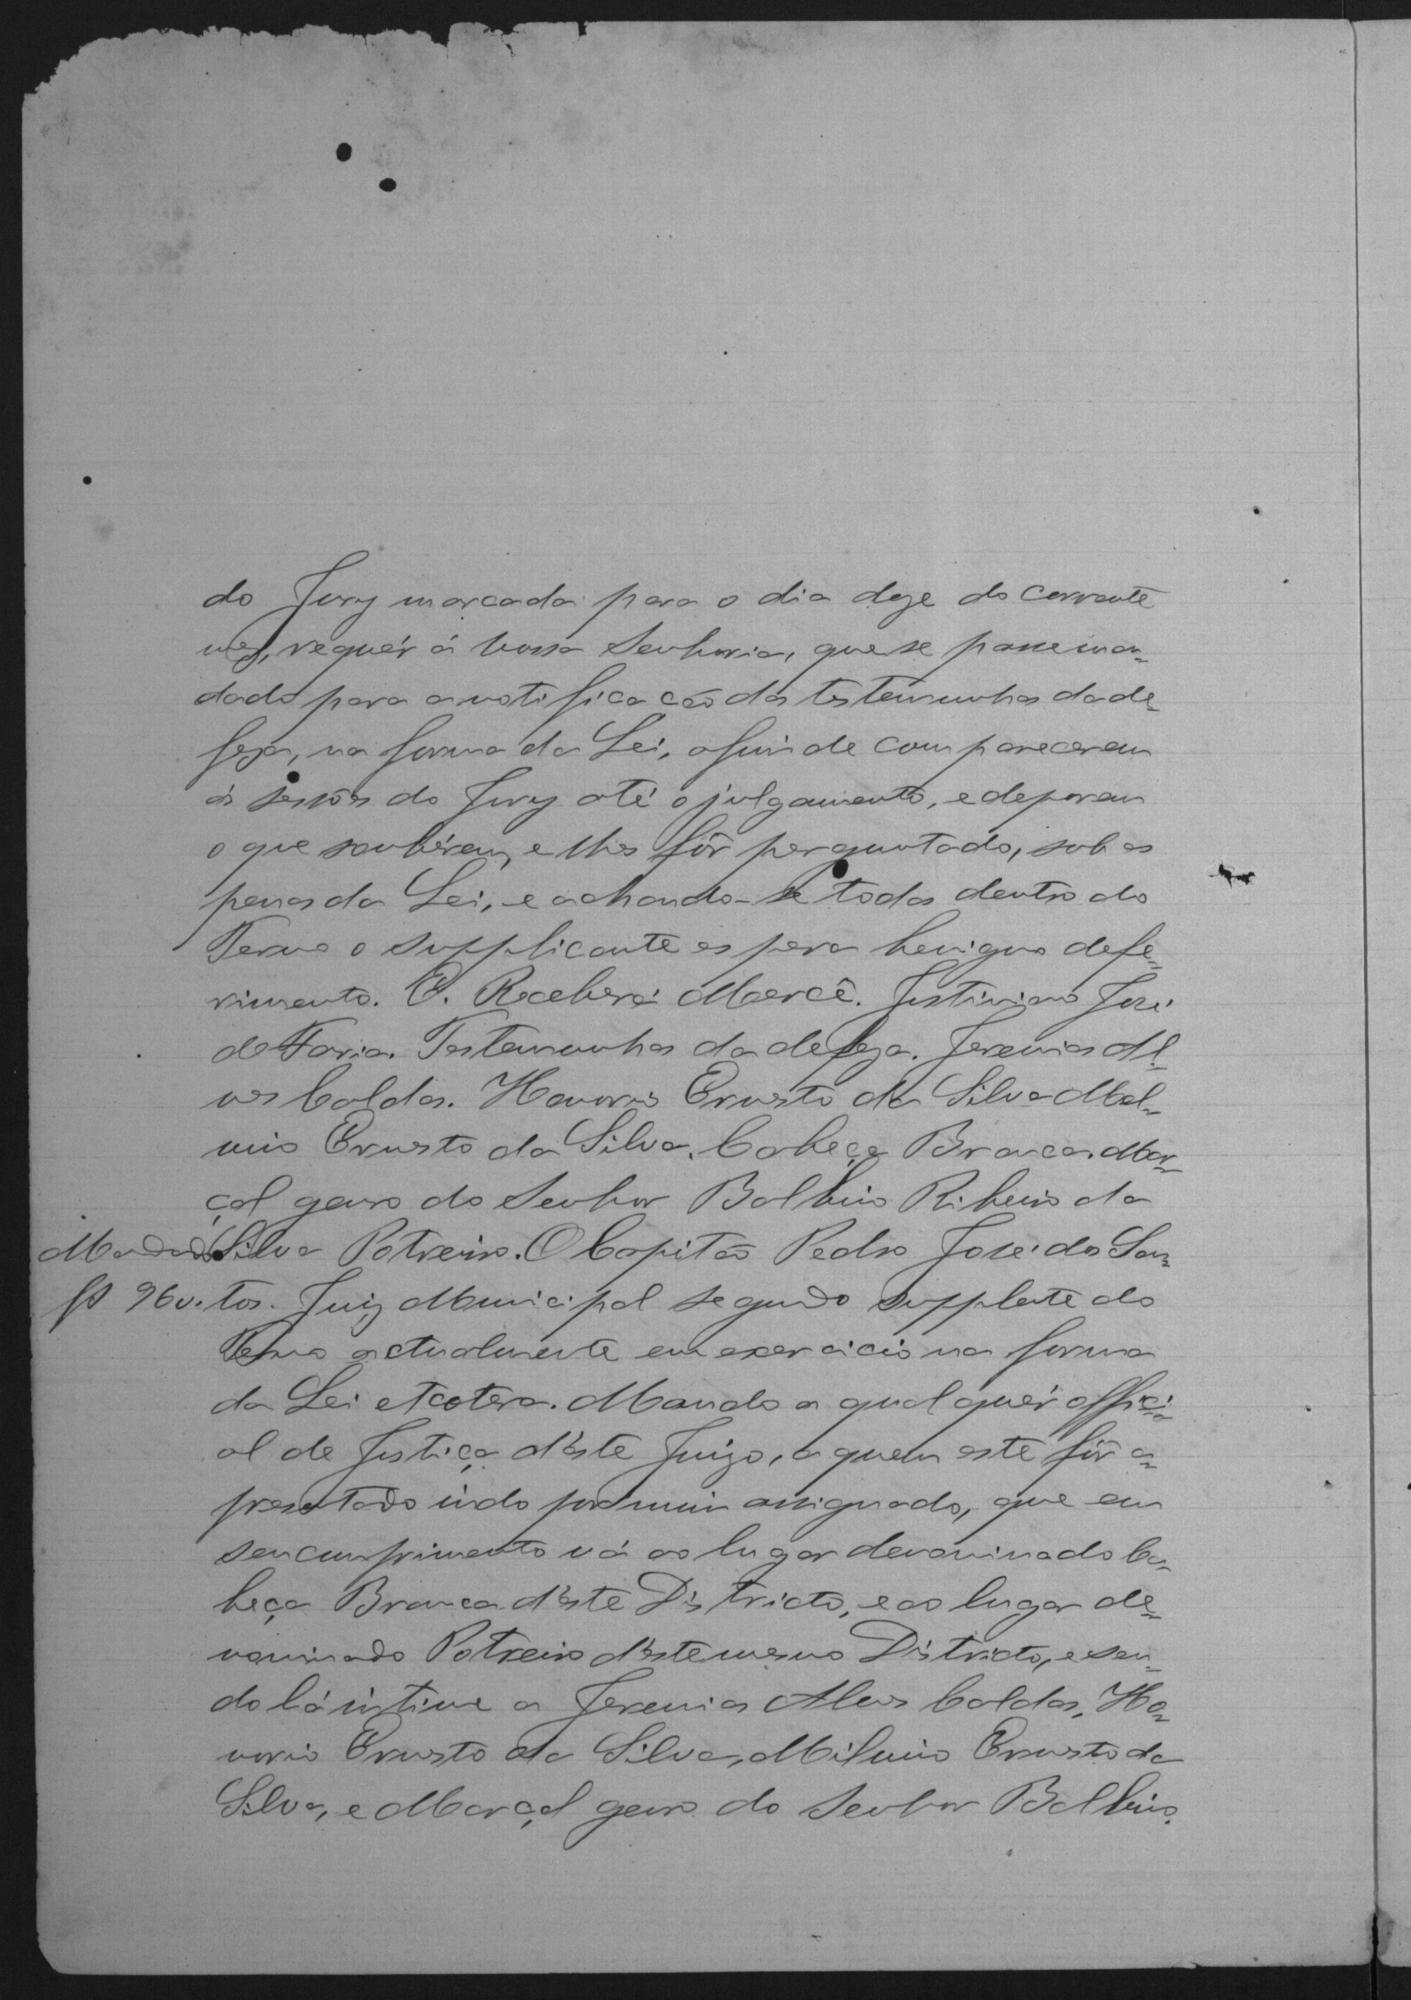 do Jury marcada para o dia doze do corrente
mez, requér á vossa Senhoria, que se passe man-
dado para a notificação das testemunhas da de-
feza, na forma da Lei, afim de compareceram
ás sessões do Jury até o julgamento, e deporam
o que soubérem, e lhes fôr perguntado, sob as
penas da Lei, e achando-se todas dentro do
Termo o supplicante espera benigno defe-
rimento. E. Receberá Mercê. Justiniano José
de Faria. Testemunhas da defeza. Jeremias Al-
ves Caldas. Honorio Ernesto da Silva Mel-
nio Ernesto da Silva. Cabeça Branca. Mar-
çal genro do Senhor Balbino Ribeiro da
Mandado Silva Potreiro. O Capitão Pedro José dos San-
fs 96v. tos. Juiz Municipal segundo supplente do
Termo actualmente em exercicio na forma
da Lei etcetera. Mando a qualquér offici-
al de Justiça d'éste Juizo, a quem este fôr a-
presentado indo por mim assignado, que em
seu cumprimento vá ao lugar denominado Ca-
beça Branca d'éste Districto, e ao lugar de-
nominado Potreiro d'éste mesmo Districto, e sen-
do lá intime a Jeremias Alves Caldas, Ho-
norio Ernesto da Silva, Milnio Ernesto da
Silva, e Marçal genro do Senhor Balbino